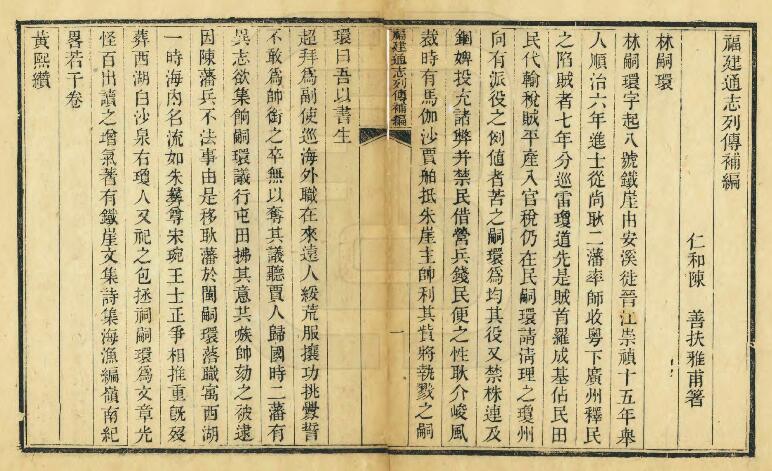 福建通志列傳補編
仁和陳　善扶雅甫箸
林嗣環
林嗣環字起八號鐵崖由安溪徙晉江崇禎十五年舉
人順治六年進士從尚耿二藩率師收粤下廣州釋民
之陷賊者七年分巡雷瓊道先是賊首羅成基佔民田
民代輸稅賊平產入官稅仍在民嗣環請淸理之瓊州
向有派役之例値者苦之嗣環爲均其役又禁株連及
錮婢投充諸弊并禁民借營兵錢民便之性耿介峻風
裁時有馬伽沙賈舶抵朱崖主帥利其貲將執戮之嗣
福建通志列傳補編
一
環曰吾以書生
超拜爲副使巡海外職在來遠人綏荒服攘功挑釁誓
不敢爲帥銜之卒無以奪其議聽賈人歸國時二藩有
異志欲集餉嗣環議行屯田拂其意共嗾帥劾之被逮
因陳藩兵不法事由是移耿藩於閩嗣環落職寓西湖
一時海內名流如朱彝尊宋琬王士正爭相推重旣歿
葬西湖白沙泉右瓊人又祀之包拯祠嗣環爲文章光
怪百出讀之增氣著有鐵崖文集詩集海漁編嶺南紀
畧若干卷
黃熙纘